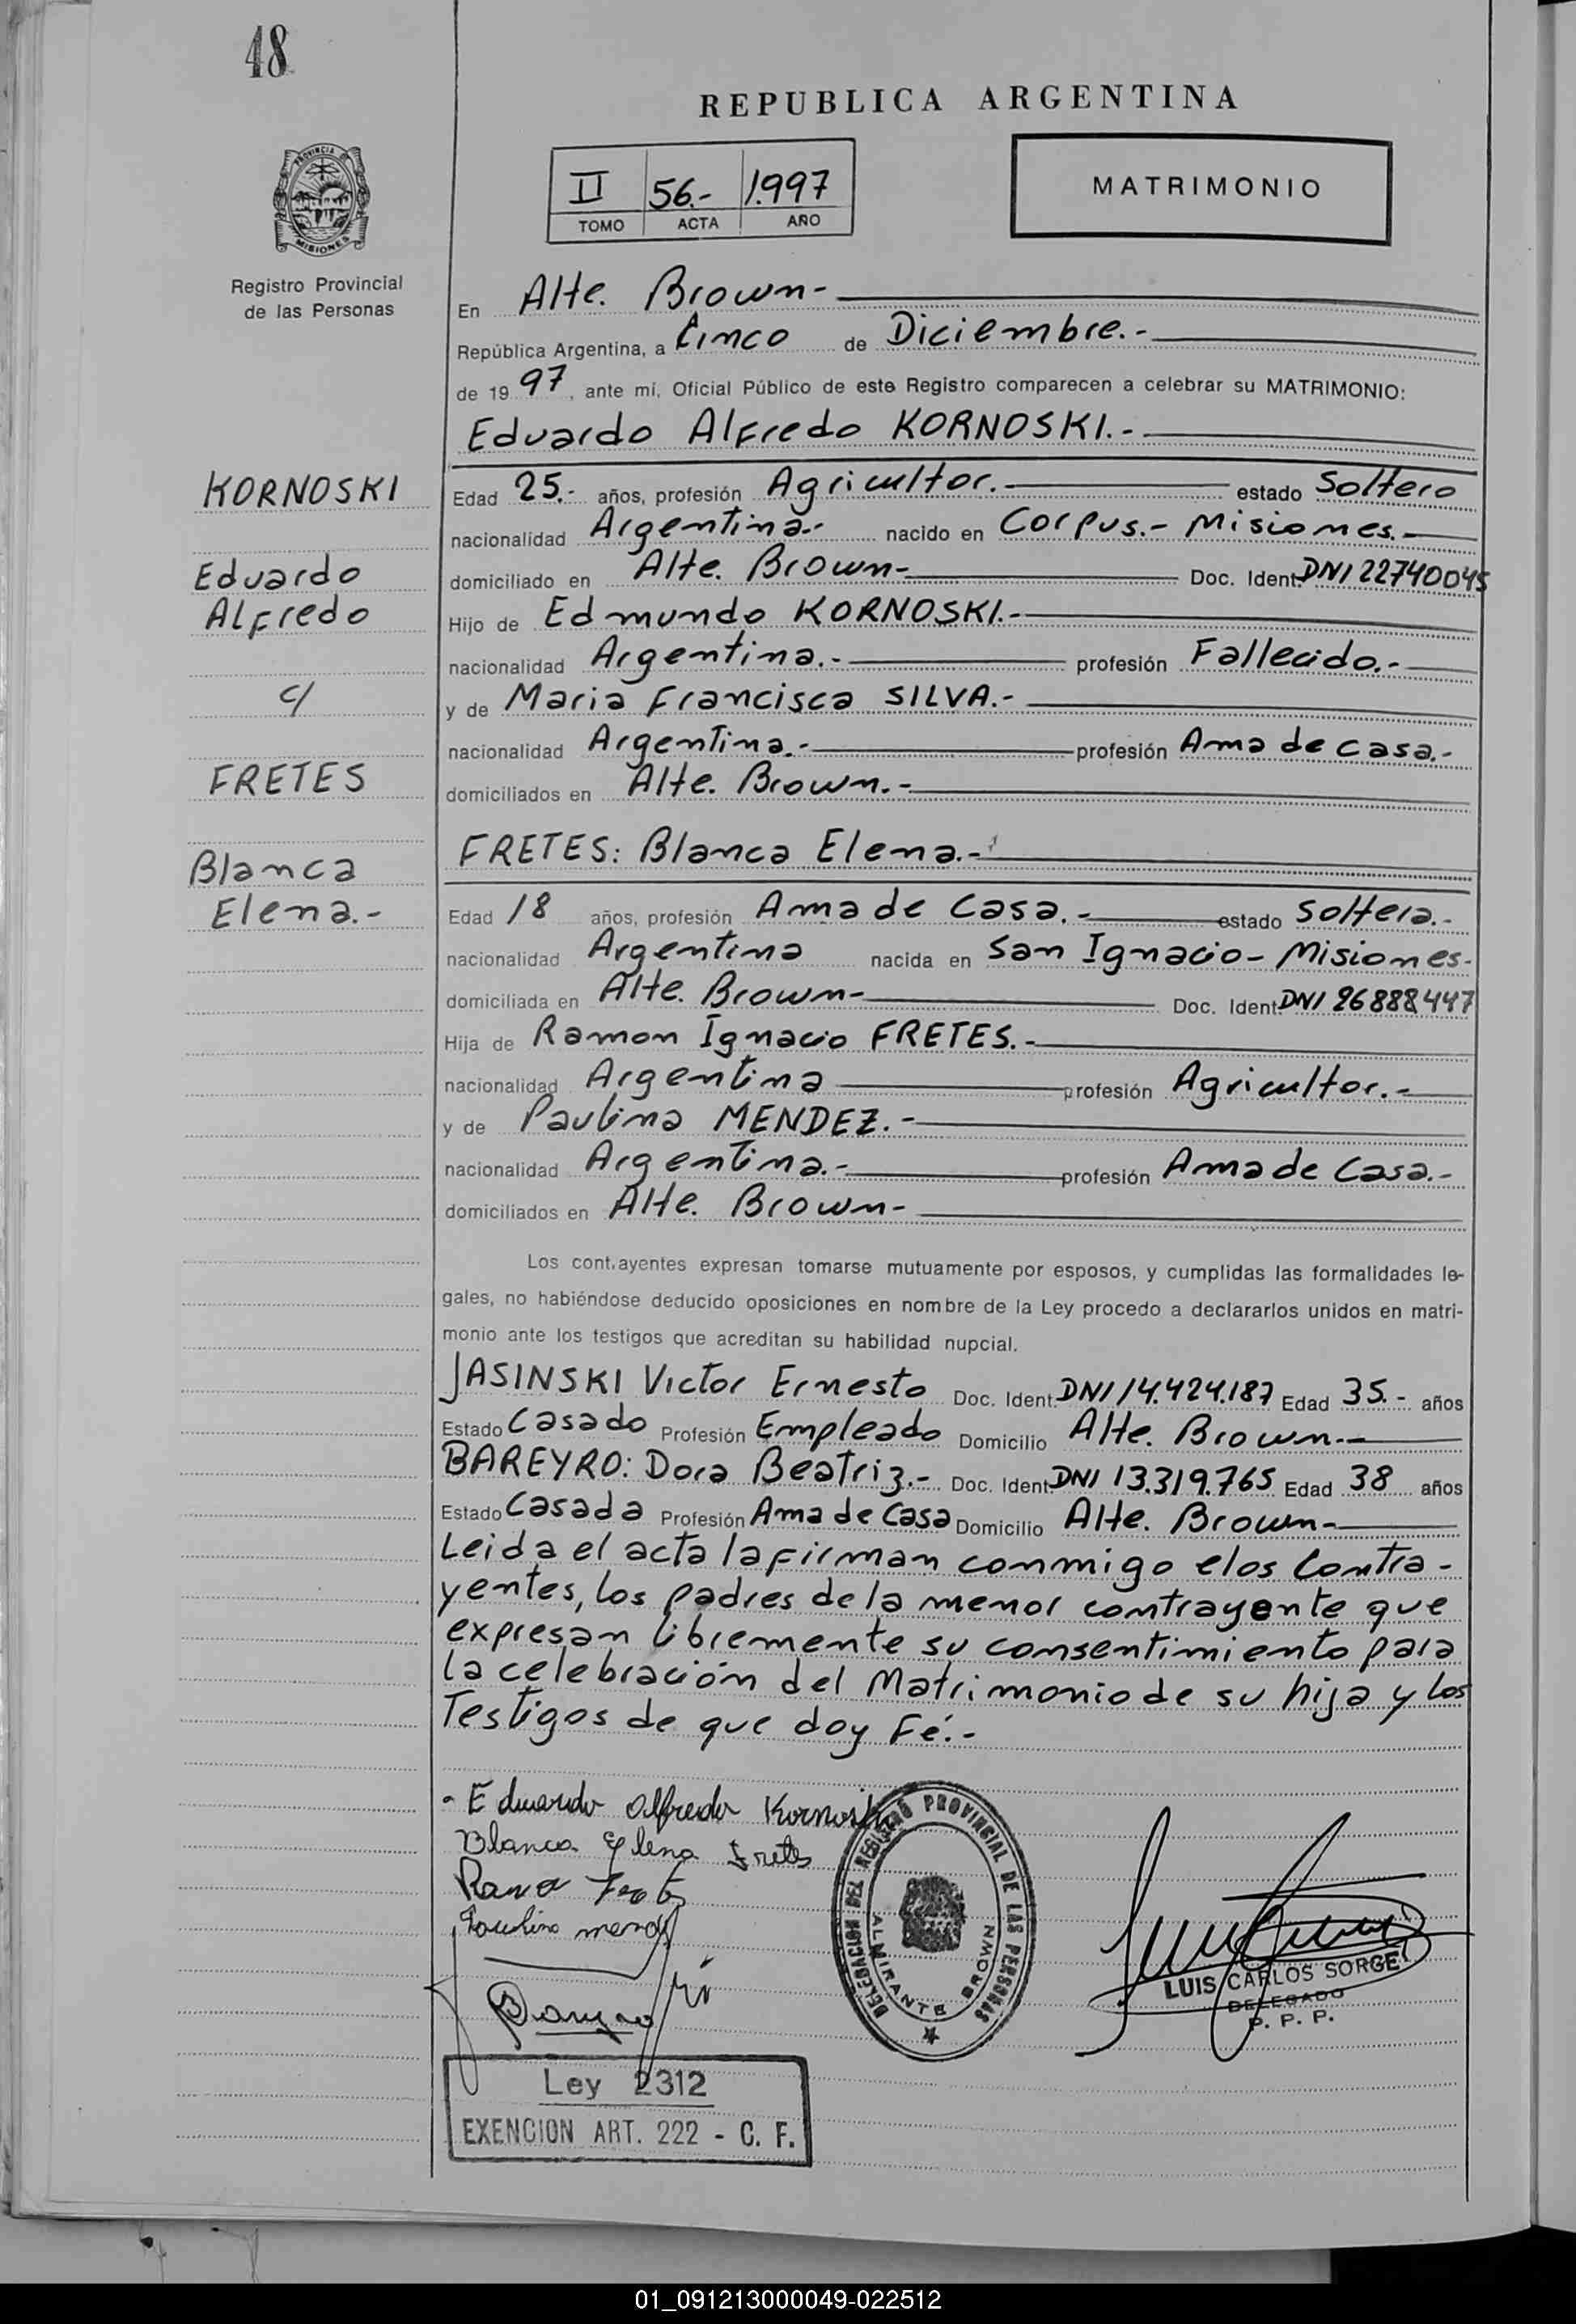 48
REPUBLICA ARGENTINA
II 56.- 1.997
TOMO ACTA AÑO
MATRIMONIO
PROVINCIA DE
MISIONES
Registro Provincial
de las Personas
En Alte. Brown-
República Argentina, a Cinco de Diciembre.-
de 19 97, ante mi, Oficial Público de este Registro comparecen a celebrar su MATRIMONIO:
Eduardo Alfredo KORNOSKI.-
KORNOSKI
Eduardo
Alfredo
c/
FRETES
Blanca
Elena.-
Edad 25.- años, profesión Agricultor. estado Soltero
nacionalidad Argentina.- nacido en Corpus.- Misiones.-
domiciliado en Alte. Brown- Doc. Ident. DNI 22740045
Hijo de Edmundo KORNOSKI.-
nacionalidad Argentina.- profesión Fallecido.-
y de Maria Francisca SILVA.-
nacionalidad Argentina.- profesión Ama de casa.-
domiciliados en Alte. Brown.-
FRETES: Blanca Elena.-
Edad 18 años, profesión Ama de Casa.- estado Soltera.-
nacionalidad Argentina nacida en San Ignacio- Misiones-
domiciliada en Alte. Brown- Doc. Ident. DNI 26888447
Hija de Ramon Ignacio FRETES.-
nacionalidad Argentina profesión Agricultor.-
y de Paulina MENDEZ.-
nacionalidad Argentina.- profesión Ama de Casa.-
domiciliados en Alte. Brown-
Los cont.ayentes expresan tomarse mutuamente por esposos, y cumplidas las formalidades le-
gales, no habiéndose deducido oposiciones en nombre de la Ley procedo a declararlos unidos en matri-
monio ante los testigos que acreditan su habilidad nupcial.
JASINSKI Victor Ernesto Doc. Ident. DNI 14.424.187 Edad 35.- años
Estado Casado Profesión Empleado Domicilio Alte. Brown.-
BAREYRO: Dora Beatriz.- Doc. Ident. DNI 13.319.765 Edad 38 años
Estado Casada Profesión Ama de Casa Domicilio Alte. Brown-
Leida el acta la firman conmigo elos Contra-
yentes, los padres de la menor contrayente que
expresan libremente su consentimiento para
la celebración del Matrimonio de su hija y los
Testigos de que doy Fé.-
- Eduardo Alfredo Kornoski
Blanca Elena Fretes
Paulina
DELEGACION DEL REGISTRO PROVINCIAL DE LAS PERSONAS
ALMIRANTE BROWN
LUIS CARLOS SORGE
DELEGADO
P. P. P.
Ley 2312
EXENCION ART. 222 - C. F.
01_091213000049-022512